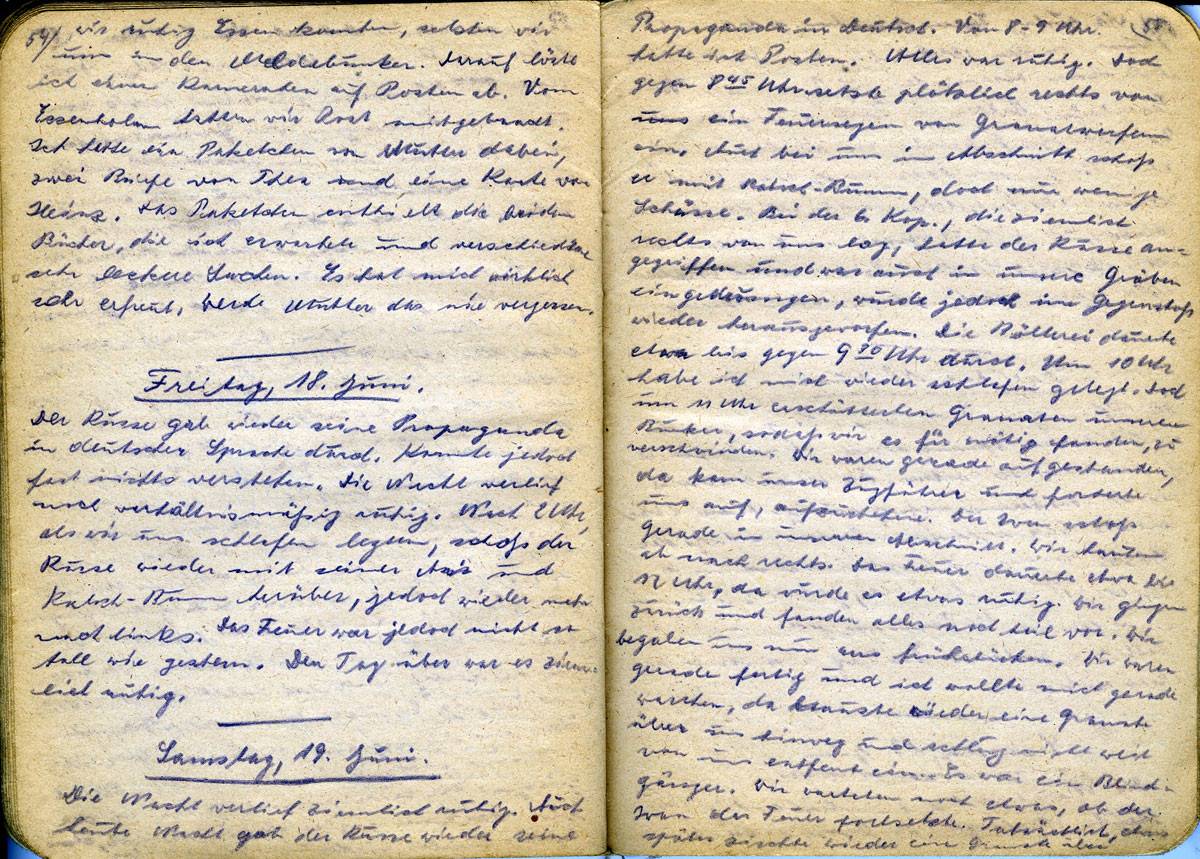 54/ wir ruhig Essen konnten, setzten wir
uns in den Meldebunker. Darauf löste
ich einen Kameraden auf Posten ab. Vom
Essenholen hatten wir Post mitgebracht.
Ich hatte ein Paketchen von Mutter dabei,
zwei Briefe von Thea und eine Karte von
Heinz. Das Paketchen enthielt die beiden
Bücher, die ich erwartete und verschiedene
sehr leckere Sachen. Es hat mich wirklich
sehr erfreut, werde Mutter das nie vergessen.
Freitag, 18. Juni.
Der Russe gab wieder seine Propaganda
in deutscher Sprache durch. Konnte jedoch
fast nichts verstehen. Die Nacht verlief
noch verhältnismäßig ruhig. Nach 2 Uhr,
als wir uns schlafen legten, schoß der
Russe wieder mit seiner und
Ratsch-Bumm herüber, jedoch wieder mehr
nach links. Das Feuer war jedoch nicht so
toll wie gestern. Den Tag über war es ziem-
lich ruhig.
Samstag, 19. Juni.
Die Nacht verlief ziemlich ruhig. Auch
heute Nacht gab der Russe wieder seine
Propaganda in Deutsch. Von 8-9 Uhr
hatte ich Posten. Alles war ruhig. Doch
gegen 8 45 Uhr setzte plötzlich rechts von
uns ein Feuersegen von Granatwerfern
ein. Auch bei uns im Abschnitt schoß
er mit Ratsch-Bumm, doch nur wenige
Schüsse. Bei der 6. Kop., die ziemlich
rechts von uns lag, hatte der Russe an-
gegriffen und war auch in unsere Gräben
eingedrungen, wurde jedoch im Gegenstoß
wieder herausgeworfen. Die Böllerei dauerte
etwa bis gegen 9 Uhr durch. Um 10 Uhr
habe ich mich wieder schlafen gelegt. Doch
um 11 Uhr erschütterten Granaten unseren
Bunker, sodaß wir es für nötig fanden, zu
verschwinden. Wir waren gerade aufgestanden,
da kam unser Zugführer und forderte
uns auf, Der Iwan schoß
gerade in unseren Abschnitt. Wir hauten
ab nach rechts. Das Feuer dauerte etwa bis
12 Uhr, da wurde es etwas ruhig. Wir gingen
zurück und fanden alles noch heil vor. Wir
begaben uns nun ans frühstücken. Wir waren
gerade fertig und ich wollte mich gerade
waschen, da rauschte wieder eine Granate
über uns hinweg und schlug nicht weit
von uns entfernt ein. Es war ein Blind-
gänger. Wir warteten noch etwas, ob der
Iwan das Feuer fortsetzte. Tatsächlich, etwas
später zischte wieder eine Granate über